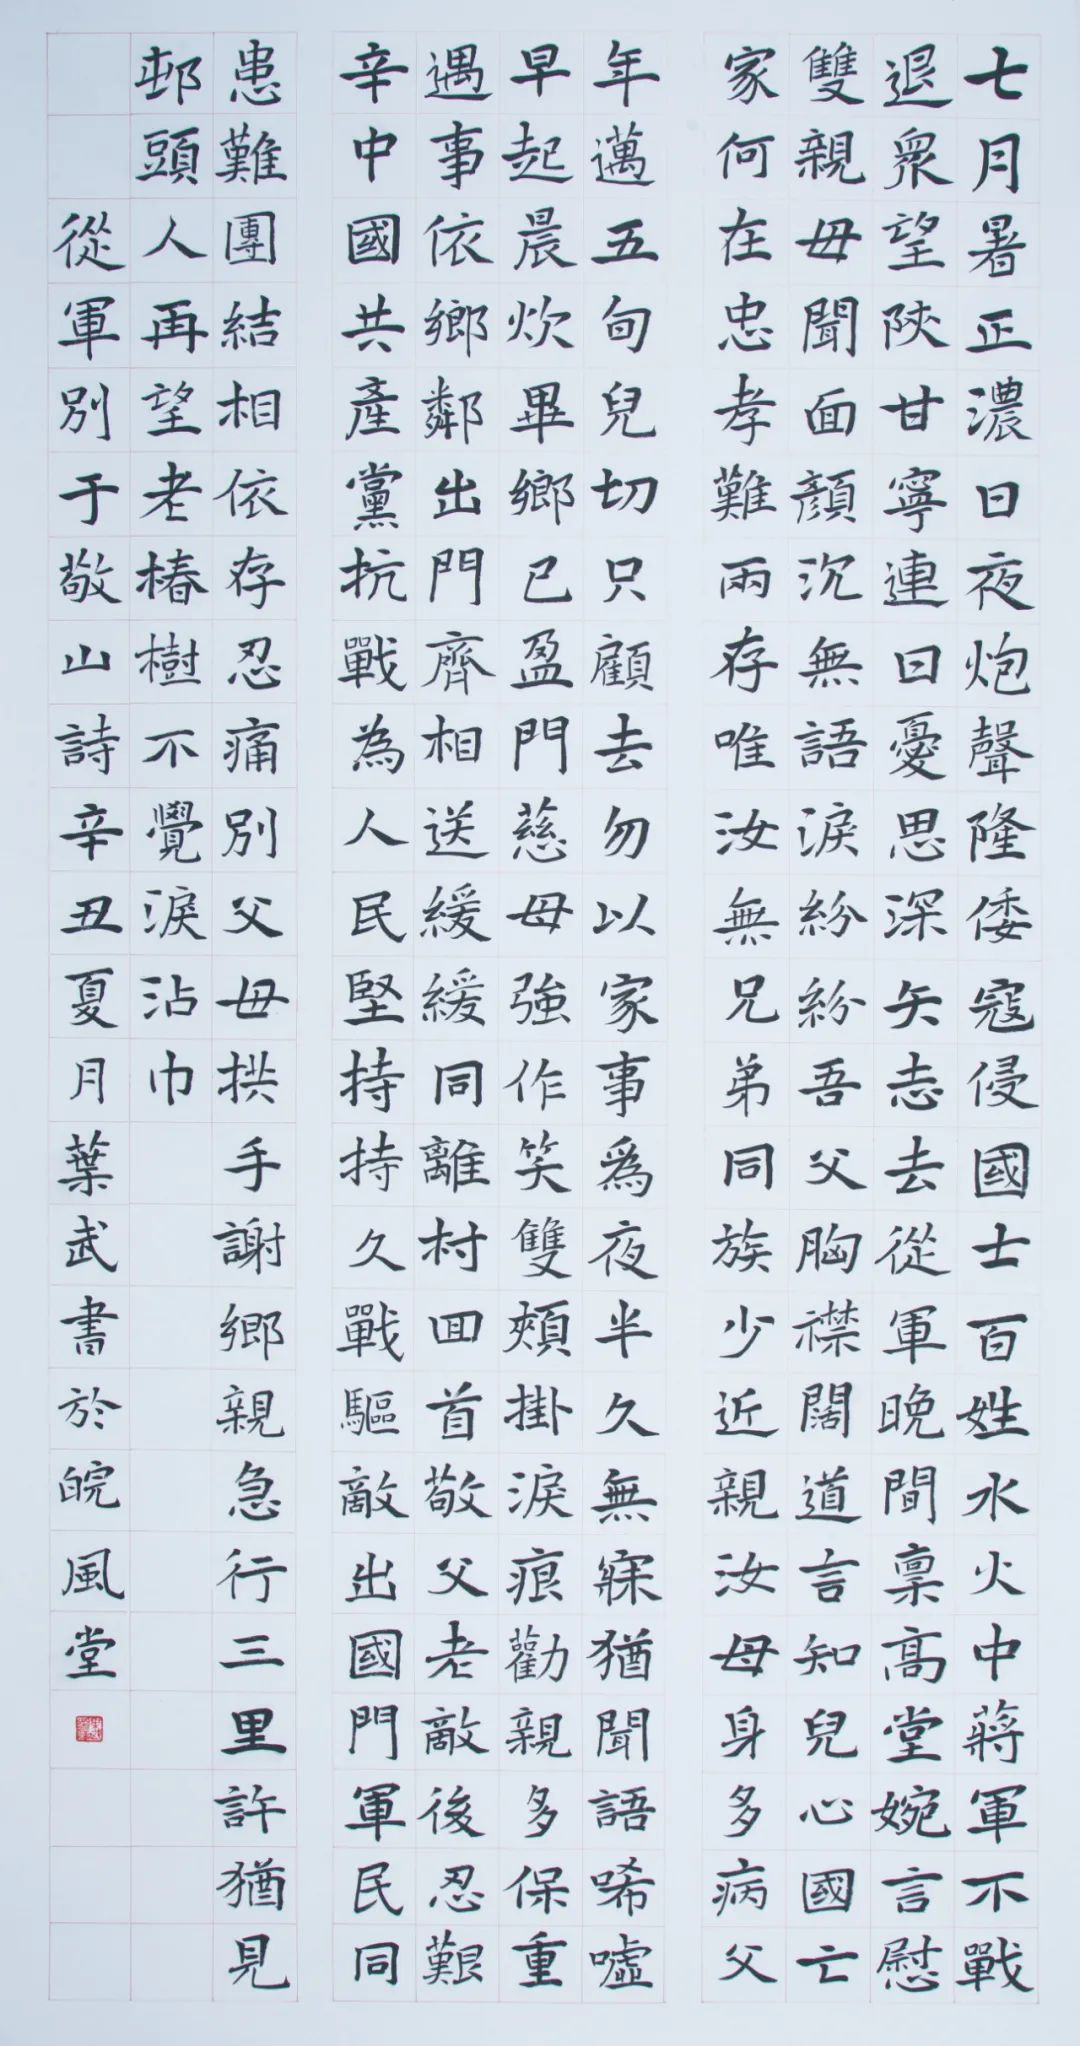 七月暑正濃日夜炮聲隆倭寇侵國土百姓水火中蔣軍不戰
退衆望陝甘寧連日憂思深矢志去從軍晚間稟高堂婉言慰
雙親母聞面顏沉無語淚紛紛吾父胸襟闊道言知兒心國亡
家何在忠孝難兩存唯汝無兄弟同族少近親汝母身多病父
年邁五旬兒切只顧去勿以家事為夜半久無寐猶聞語唏噓
早起晨炊畢鄉已盈門慈母強作笑雙頰掛淚痕勸親多保重
遇事依鄉鄰出門齊相送緩緩同離村回首敬父老敵後忍艱
辛中國共產黨抗戰為人民堅持持久戰驅敵出國門軍民同
患難團結相依存忍痛別父母拱手謝鄉親急行三里許猶見
邨頭人再望老椿樹不覺淚沾巾
從軍別于敬山詩辛丑夏月葉武書於皖風堂